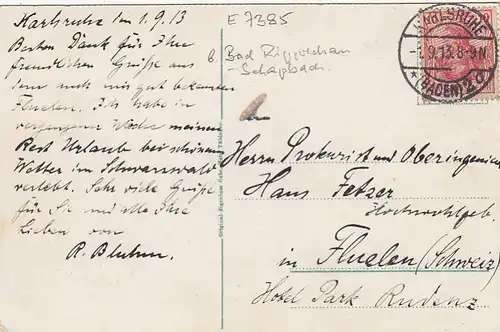 Karlsruhe den 1.9.13
Besten Dank für Ihre
freundlichen Grüße aus
dem auch mir gut bekannten
Fluelen. Ich habe in
vergangener Woche meinen
Rest Urlaub bei schönem
Wetter im Schwarzwald
verlebt. Sehr viele Grüße
für Sie und alle Ihre
Lieben von
R.
E 7385
b. Bad
-Schapbach
KARLSRUHE
9.13. 8-9N
* (BADEN) 2
An
Herrn Prokurist und Oberingenieur
Hans Fetzer
Hochwohlgeb.
in Fluelen (Schweiz)
Hotel Park Rudenz